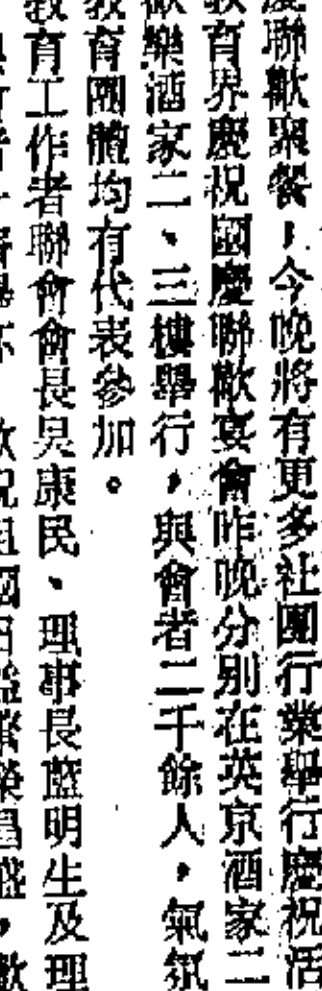 慶聯歡聚餐，今晚將有更多社團行業舉行慶祝活
教育界慶祝國慶聯歡宴會昨晚分別在英京酒家二
歡樂酒家二、三樓舉行，與會者二千餘人，氣氛
教育團體均有代表參加。
教育工作者聯會會長吳康民、理事長藍明生及理
祝祖國日益繁榮昌盛，歡